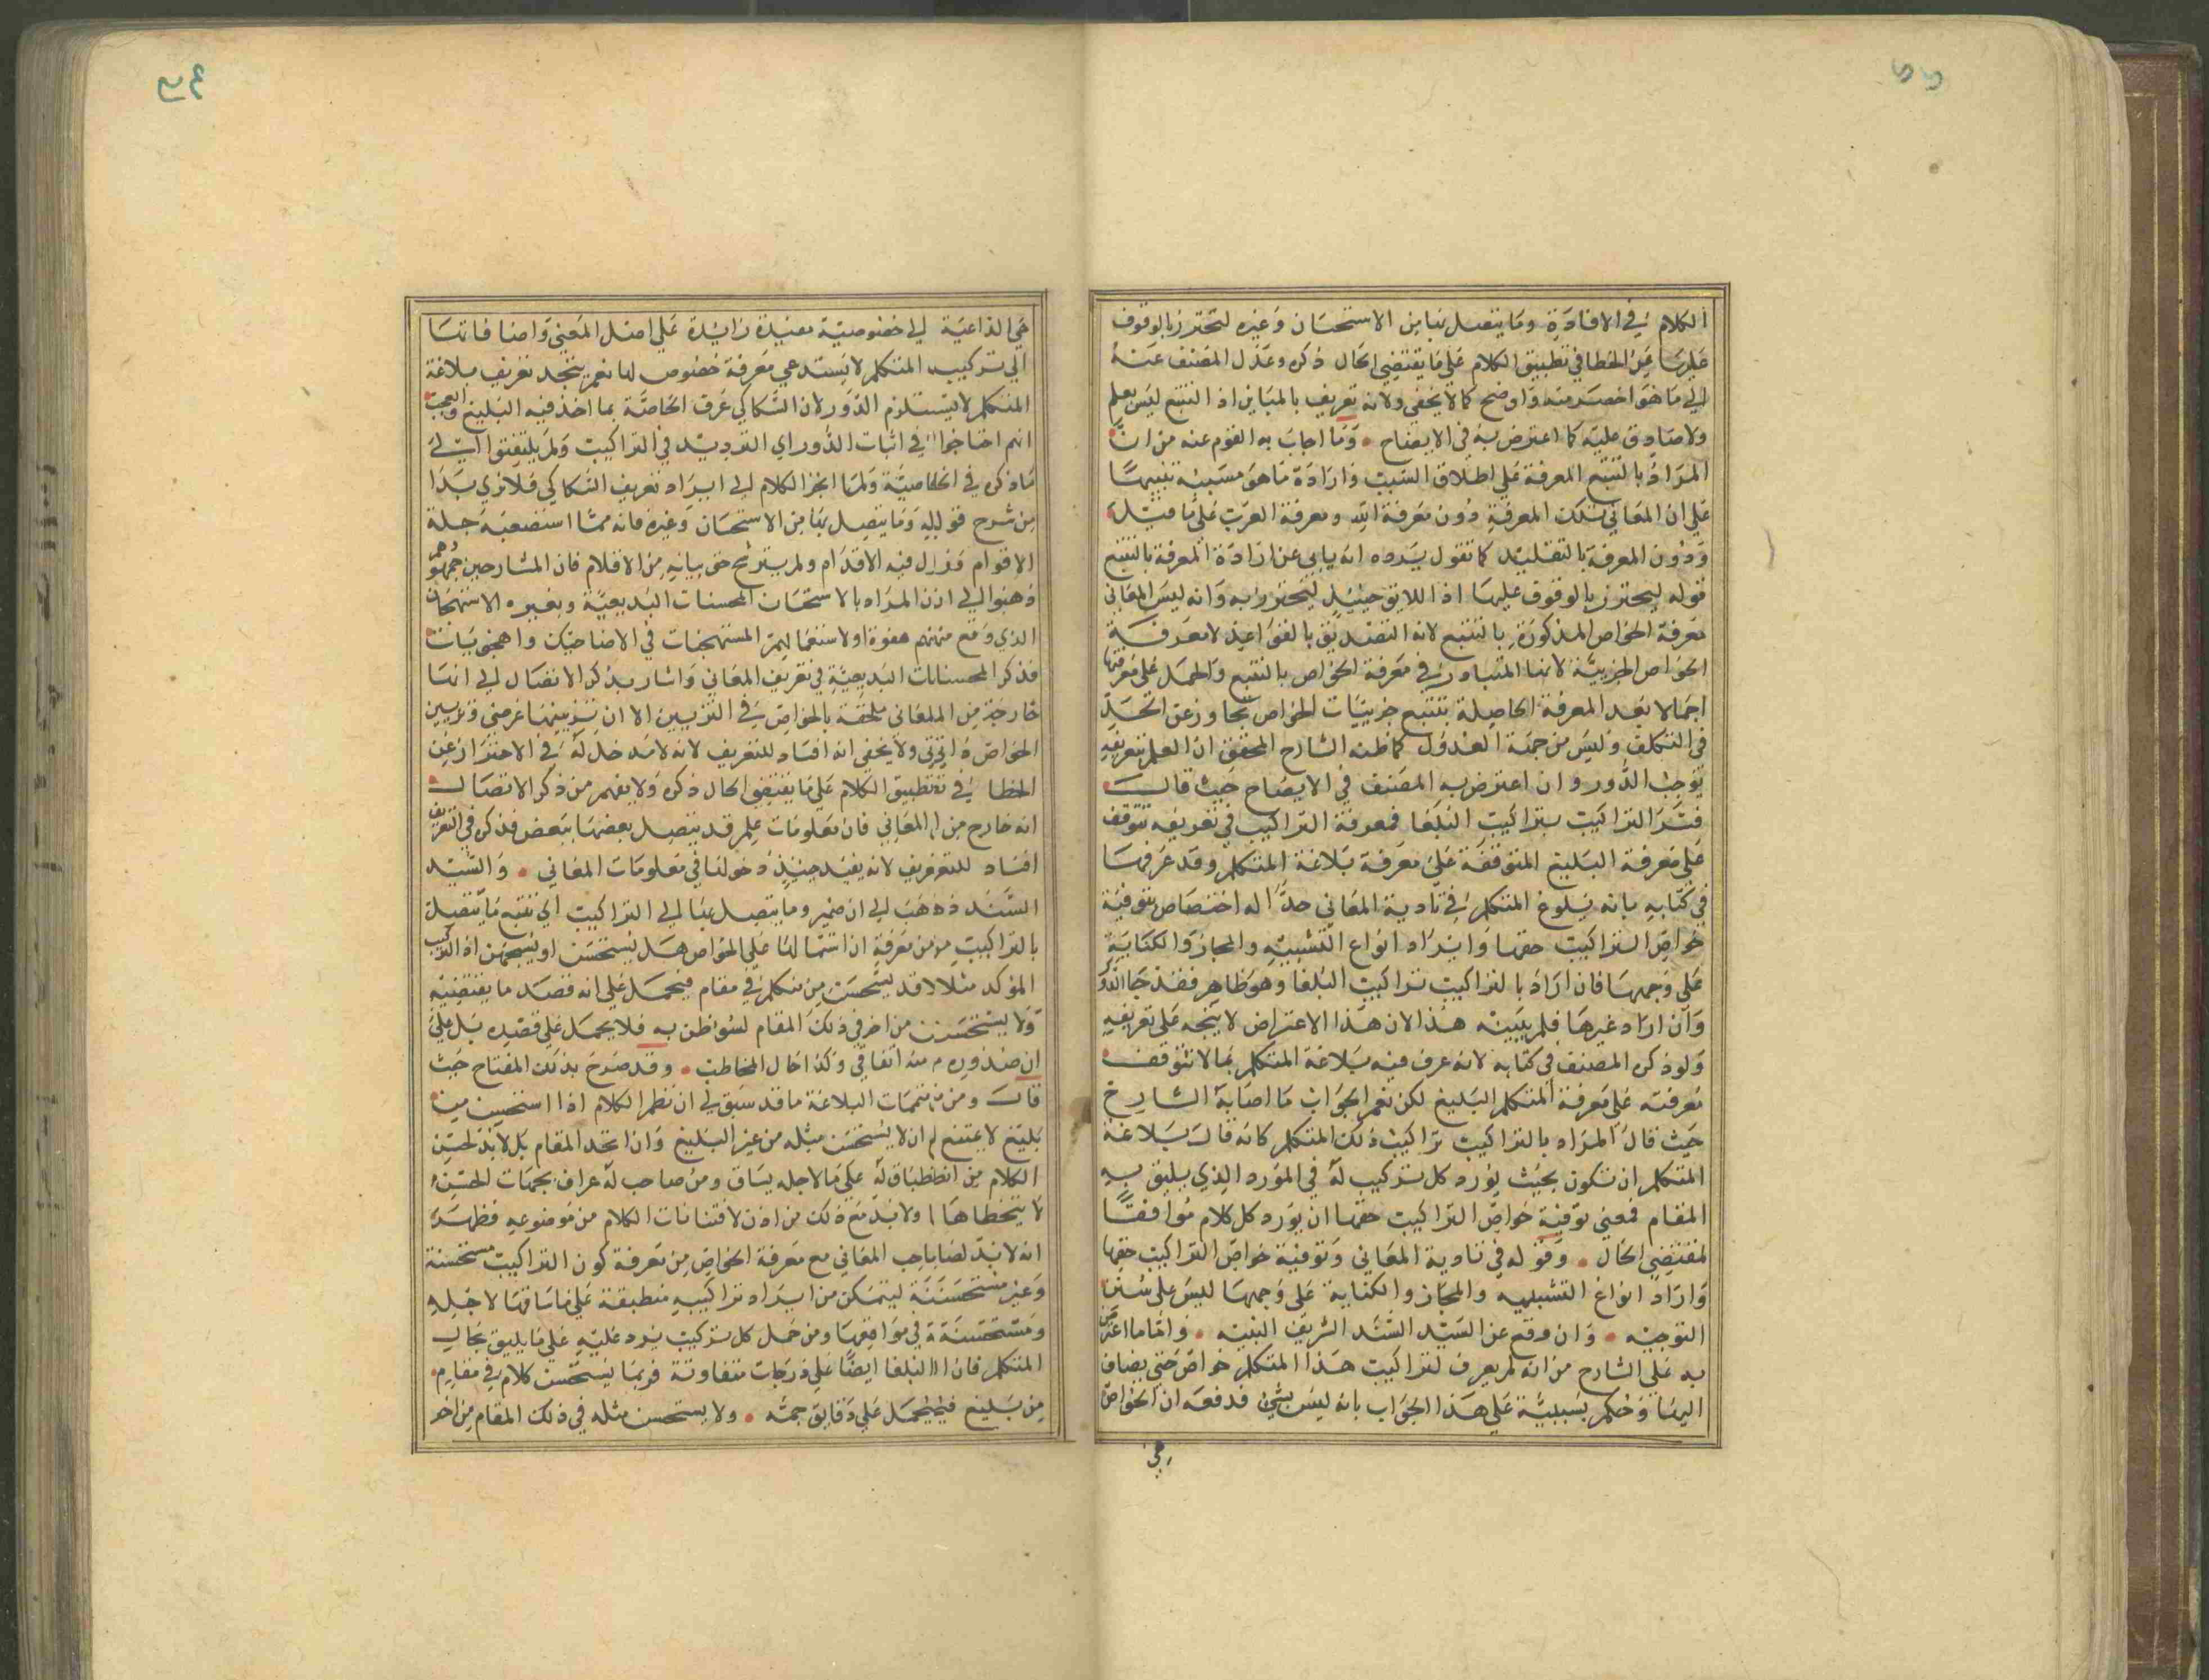 الكلام في الافادة وما يتصل بها من الاستحسان وغيره لتحترز بالوقوف
عليها عن الخطا في تطبيق الكلام على ما يقتضي الحال ذكره وعدل المصنف عنه
الي ما هو اخصر منه واوضح كما لا يخفى ولانه تعريف بالمباين اذ التتبع ليس بعلم
ولا صادق عليه كما اعترض به في الايضاح وما اجاب به القوم عنه من ان
المراد بالتتبع المعرفة على اطلاق السبب وارادة ما هو مسببه تنبيها
على ان المعاني تلك المعرفة دون معرفة الله ومعرفة العرب على ما قيل
ودون المعرفة بالتقليد كما تقول يرده انه يابى عن ارادة المعرفة بالتتبع
قوله ليحترز بالوقوف عليها اذ اللايق حينئذ ليحترز به وانه ليس المعاني
معرفة الخواص المذكورة بالتتبع لانه التصديق بالقواعد لا معرفة
الخواص الجزيية لانها المتبادر في معرفة الخواص بالتتبع والحمل على معرفتها
اجمالا بعد المعرفة الحاصلة بتتبع جزييات الخواص تجاوز عن الحد
في التكلف وليس من جهة العدول كما ظنه الشارح المحقق ان العلم بتعريفه
توجب الدور وان اعترض به المصنف في الايضاح حيث قال
فسر التراكيب بتراكيب البلغا فمعرفة التراكيب في تعريفه تتوقف
على معرفة البليغ المتوقفة على معرفة بلاغة المتكلم وقد عرفها
في كتابه بانه بلوغ المتكلم في تادية المعاني حدا له اختصاص بتوفية
خواص التراكيب حقها وايراد انواع التشبيه والمجاز والكناية
على وجهها فان اراد بالتراكيب تراكيب البلغا وهو ظاهر فقد جا الدور
وان اراد غيرها فلم يبينه هذا لان هذا الاعتراض لا يتجه على تعريفه
ولو ذكره المصنف في كتابه لانه عرف فيه بلاغة المتكلم بما لا تتوقف
معرفته على معرفة المتكلم البليغ لكن نعم الجواب ما اصابه الشارح
حيث قال المراد بالتراكيب تراكيب ذلك المتكلم كانه قال بلاغة
المتكلم ان تكون بحيث يورد كل تركيب له في المورد الذي يليق به
المقام فمعنى توفية خواص التراكيب حقها ان يورد كل كلام موافقا
لمقتضي الحال وقوله في تادية المعاني وتوفية خواص التراكيب حقها
وايراد انواع التشبيه والمجاز والكناية على وجهها ليس على سنن
التوجيه وان وقع عن السيد السند الشريف النبيه واما ما اعترض
به على الشارح من انه لم يعرف لتراكيب هذا المتكلم خواص حتى يضاف
اليها وحكم بسببية على هذا الجواب بانه ليس بشيء فدفعه ان الخواص
هي
هي الداعية الي خصوصية مفيدة زايدة على اصل المعنى واضافاتها
الي تركيب المتكلم لا يستدعي معرفة خصوص لها نعم يتجه تعريف بلاغة
المتكلم لا يستلزم الدور لان السكاكي عرف الخاصة بما اخذ فيه البليغ والعجب
انهم احتاجوا في اثبات الدور الي الترديد في التراكيب ولم يلتفتوا الي
ما ذكره في الخاصية ولما انجز الكلام الي ايراد تعريف السكاكي فلا نرى بدا
من شرح قوله وما يتصل بها من الاستحسان وغيره فانه مما استصعبه جلة
الاقوام وزل فيه الاقدام ولم يترشح حق بيانه من الاقلام فان الشارحين جمهورهم
ذهبوا الي ان المراد بالاستحسان المحسنات البديعية وبغيره الاستهجان
الذي وقع منهم هفوة او لاستعمالهم المستهجنات في الاضاحيك واهجى بيات
فذكر المحسنات البديعية في تعريف المعاني واشار بذكر الاتصال الي انها
خارجة من المعاني ملحقة بالخواص في التزيين الا ان تزيينها عرضي وتزيين
الخواص ذاتي ولا يخفى انه افساد للتعريف لانه لا مدخل له في الاحتراز عن
الخطا في تطبيق الكلام على ما يقتضي الحال ذكره ولا يفهم من ذكر الاتصال
انه خارج من المعاني فان معلومات علم قد يتصل بعضها ببعض فذكره في التعريف
افساد للتعريف لانه يفيد حينئذ دخولها في معلومات المعاني والسيد
السند ذهب الي ان ضمير وما يتصل بها الي التراكيب اي تتبع ما يتصل
بالتراكيب من معرفة ان اشتمالها على الخواص هل يستحسن او يستهجن اذ التركيب
المؤكد مثلا قد يستحسن من متكلم في مقام فيحمل على انه قصد ما يقتضيه
ولا يستحسن من اخر في ذلك المقام لسوء ظن به فلا يحمل على قصده بل على
ان صدوره منه اتفاقي وكذا حال المخاطب وقد صرح بذلك المفتاح حيث
قال ومن متممات البلاغة ما قد سبق لي ان نظم الكلام اذا استحسن من
بليغ لا يمتنع ان لا يستحسن مثله من غير البليغ وان اتحد المقام بل لا بد لحسن
الكلام من انطباق له على ما لاجله يساق ومن صاحب له عراف بجهات الحسن
لا يتخطاها ولا بد مع ذلك من اذن لافتنانات الكلام من موضوعه فظهر
انه لا بد لصاحب المعاني مع معرفة الخواص من معرفة كون التراكيب مستحسنة
وغير مستحسنة ليتمكن من ايراد تراكيبه منطبقة على ما ساقها لاجله
ومستحسنة في مواقعها ومن حمل كل تركيب يرد عليه على ما يليق بحال
المتكلم فان البلغا ايضا على درجات متفاوتة فربما يستحسن كلام في مقام
من بليغ فيحمل على دقايق جمة ولا يستحسن مثله في ذلك المقام من اخر